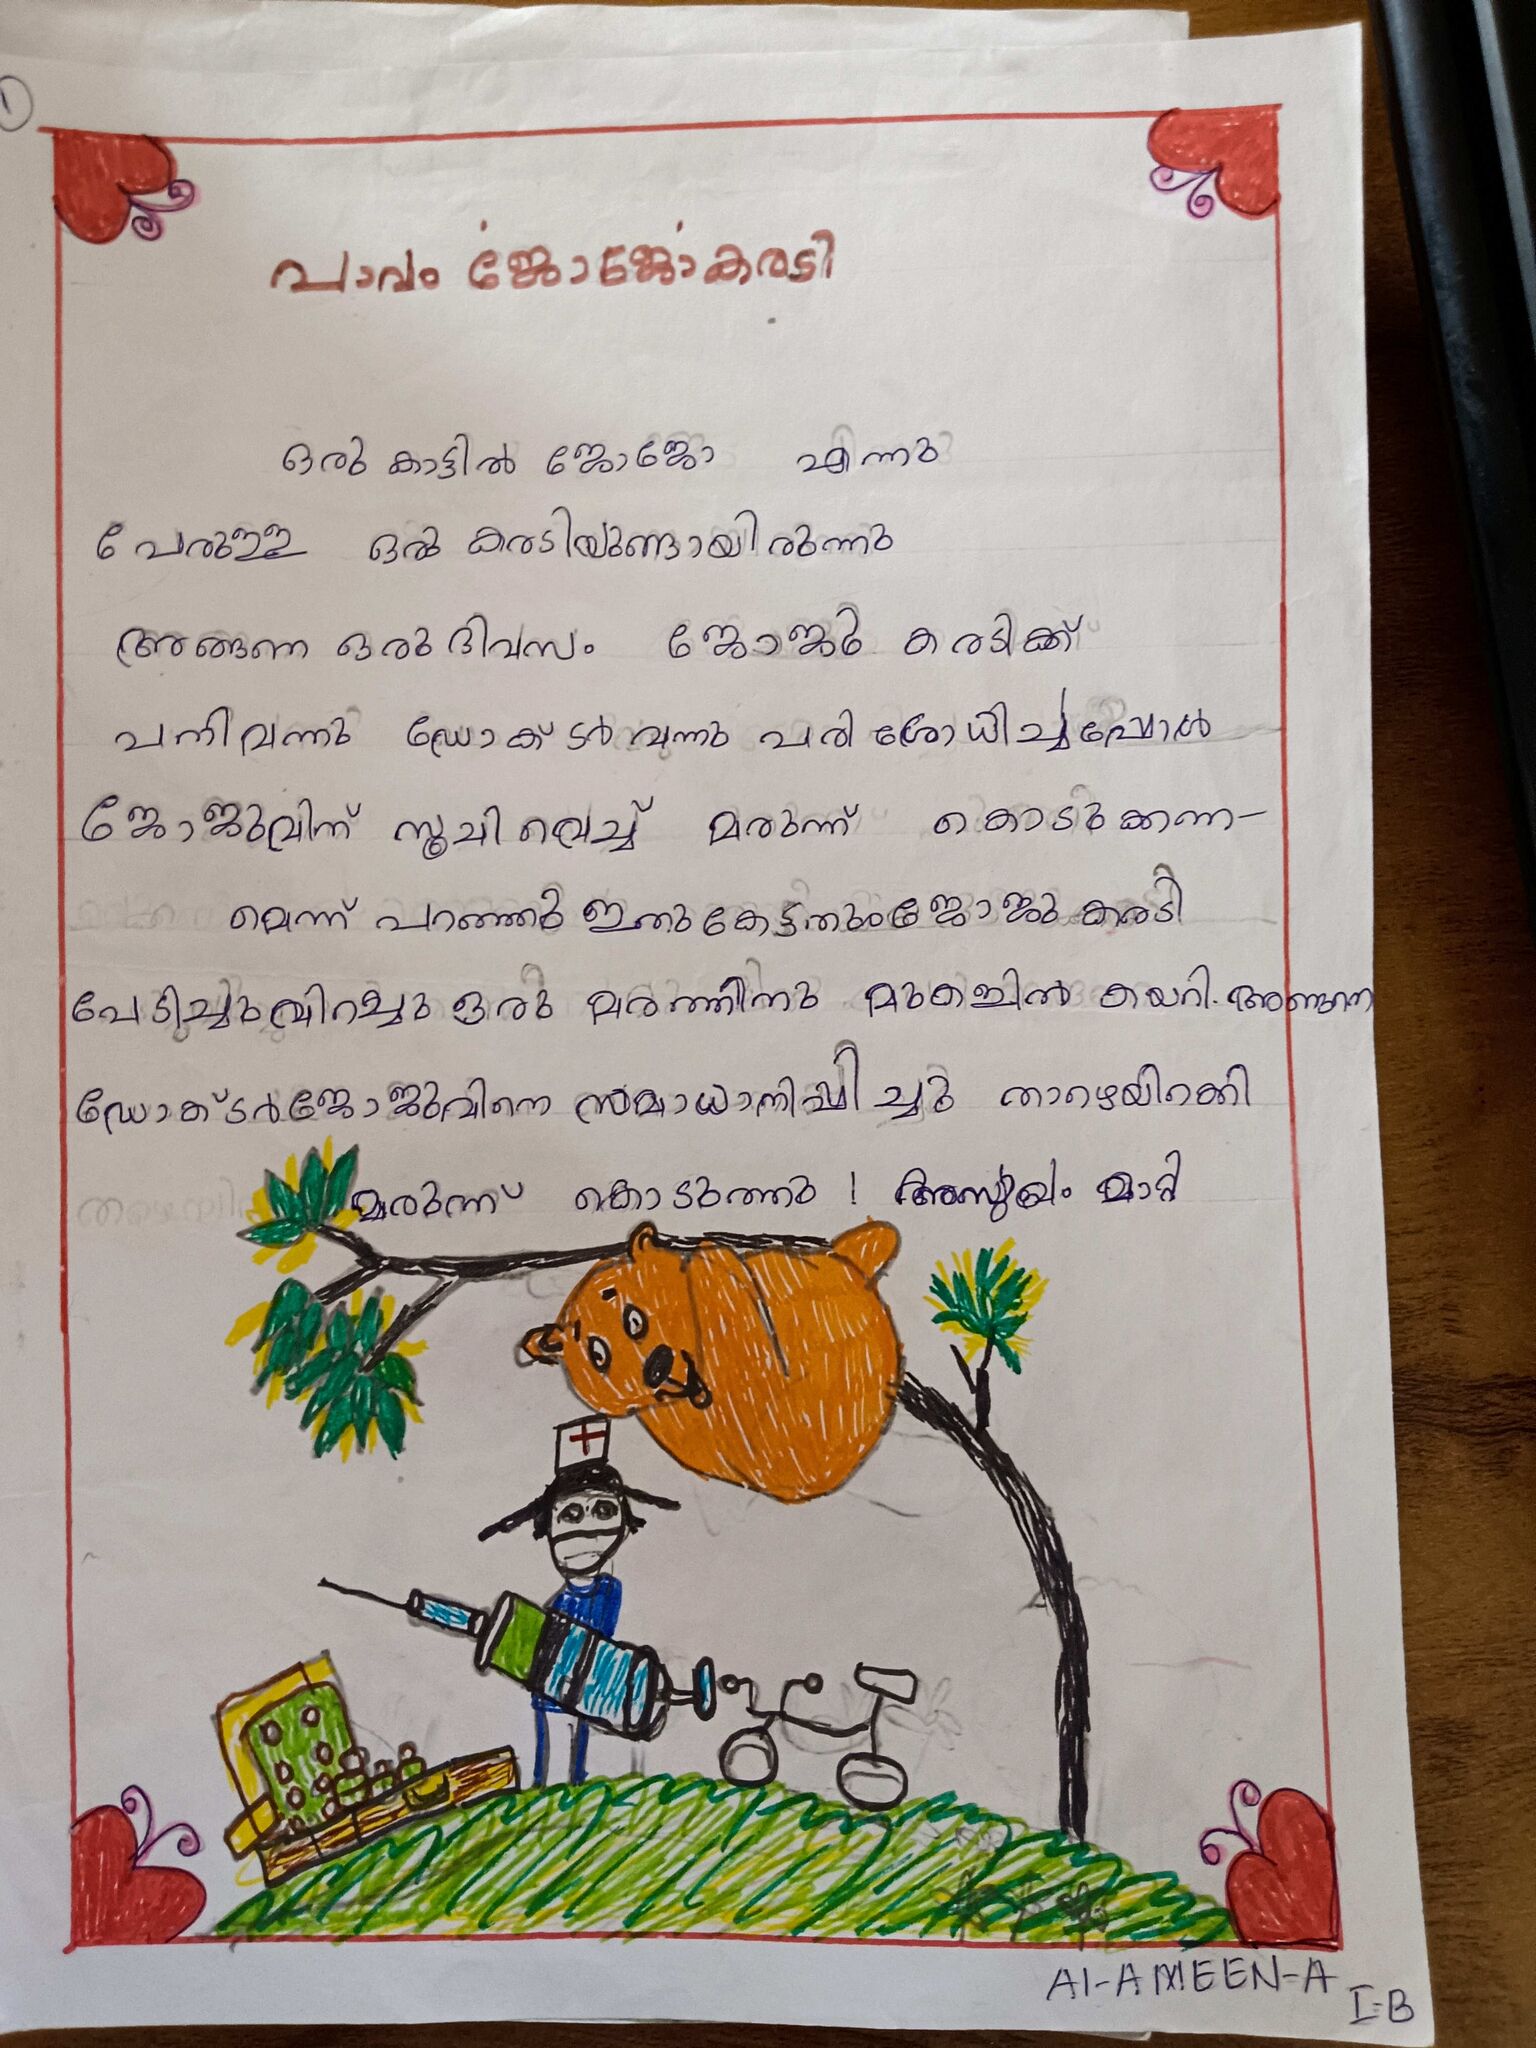 1
പാവം ജോജോകരടി
ഒരു കാട്ടിൽ ജോജോ എന്നു
പേരുള്ള ഒരു കരടിയുണ്ടായിരുന്നു
അങ്ങനെ ഒരു ദിവസം ജോജു കരടിക്ക്
പനിവന്നു ഡോക്ടർ വന്നു പരിശോധിച്ചപ്പോൾ
ജോജുവിന് സൂചി വെച്ച് മരുന്ന് കൊടുക്കണ-
മെന്ന് പറഞ്ഞു ഇതു കേട്ടതും ജോജു കരടി
പേടിച്ചുവിറച്ചു ഒരു മരത്തിനു മുകളിൽ കയറി. അങ്ങനെ
ഡോക്ടർ ജോജുവിനെ സമാധാനിപ്പിച്ചു താഴെയിറക്കി
മരുന്ന് കൊടുത്തു ! അസുഖം മാറ്റി
Al-AMEEN-A
I-B